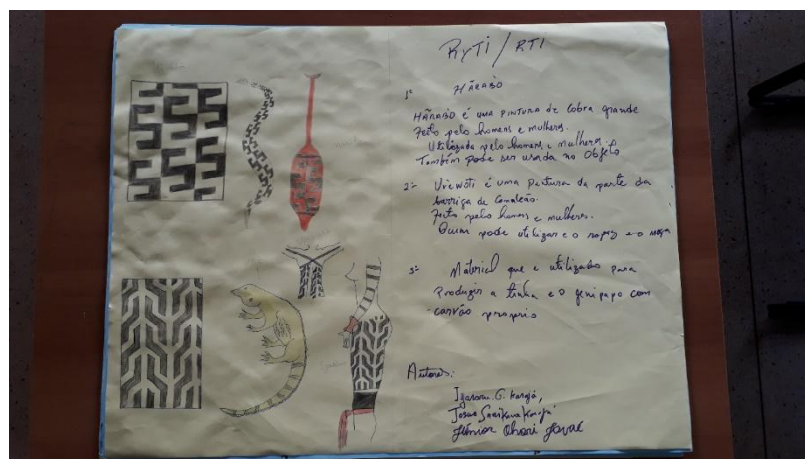 RyTi / RTI
1º HÃRABÒ
HÃRABÒ é uma pintura de cobra grande
Feito pelo homens e mulheres.
Utilizada pelo homens e mulheres.
Também pode ser usada no objeto
2º- é uma pintura da parte da
barriga de camaleão.
Feito pelo homens e mulheres.
Quem pode utilizar e o rapaz e o moça
3º- Material que e utilizado para
Produzir a tinha e o genipapo com
carvão proprio
Autores:
G. Karajá,
Karajá
Júnior